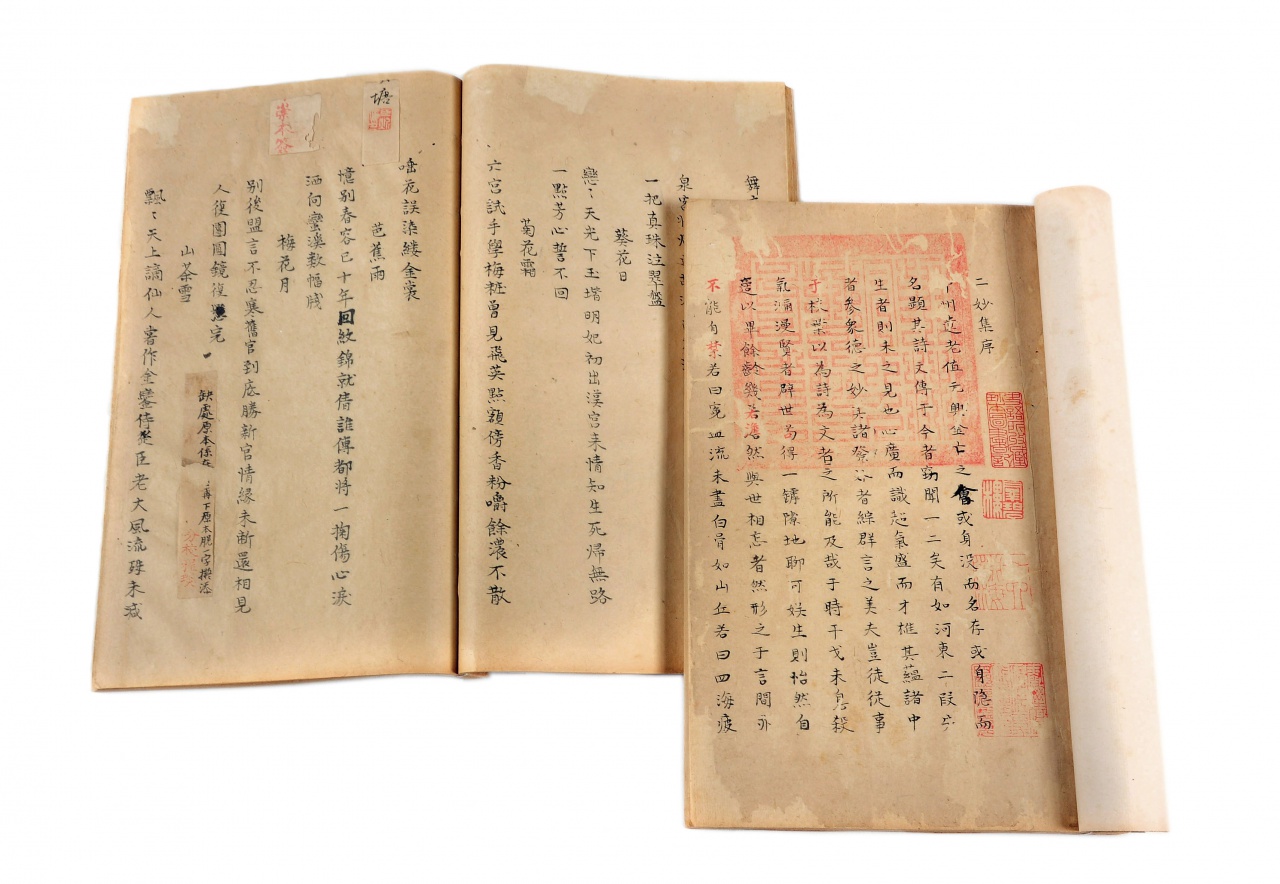 二妙集序
中州遗老值元興金亡之會或身没而名存或身隐而
名顯其詩文傳于今者竊聞一二矣有如河東二段
生者則未之見也心廣而識超氣盛而才雄其藴諸中
者參衆德之妙其諸發
者綜群言之美夫豈徒從事
于枝葉以為詩為文者之所能及哉于時干戈未息殺
氣瀰漫賢者辟世苟得一罅隙地聊可娱生則怡然自
適以畢餘齡幾若澹然與世相忘者然形之于言間亦
不能自禁若曰冤血流未盡白骨如山丘若曰四海疲
舞
一把真珠注翠盤
葵花日
戀戀天光下玉墀明妃初出漢宫来情知生死歸無路
一點芳心誓不回
菊花霜
六宫試手學梅粧曾見飛英點額傍香粉嚼餘濃不散
塘
素木簽
唾花誤染縷金裳
芭蕉雨
憶别春容已十年回紋錦就倩誰傳都將一掬傷心淚
洒向蠻溪数幅牋
梅花月
别後盟言不忍寒舊官到底勝新官情緣未断還相見
人復團圓鏡復完
山茶雪
飄飄天上謫仙人署作金鑾侍從臣老大風流殊未減
缺處原本係在
再下原本脱一字擬添